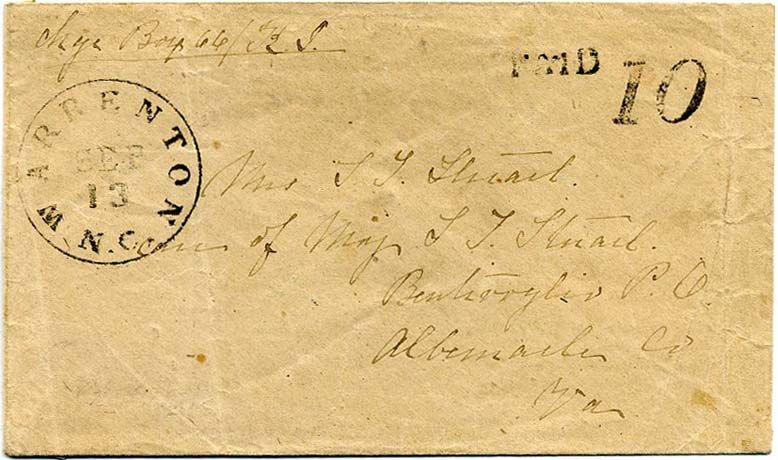 Chge Box 66/ K S.
PAID 10
WARRENTON
N.C.
SEP
13
Mrs S T. Stuart.
Care of Maj S T. Stuart.
Bentivoglio P. O.
Albemarle Co
Va